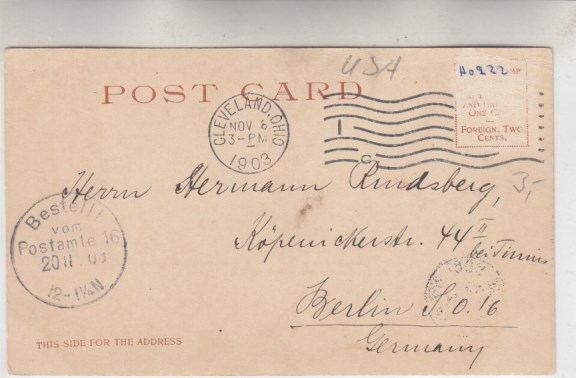 USA
POST CARD
Ao222
ONE C
FOREIGN, TWO
CENTS.
CLEVELAND, OHIO
NOV 8
3-PM
1903
Herrn Hermann Rindsberg,
Köpenickerstr. 44 II
bei
Berlin S.O. 16
Germany
Bestellt
vom
Postamte 16
20 11 03
12-1¼N
THIS SIDE FOR THE ADDRESS